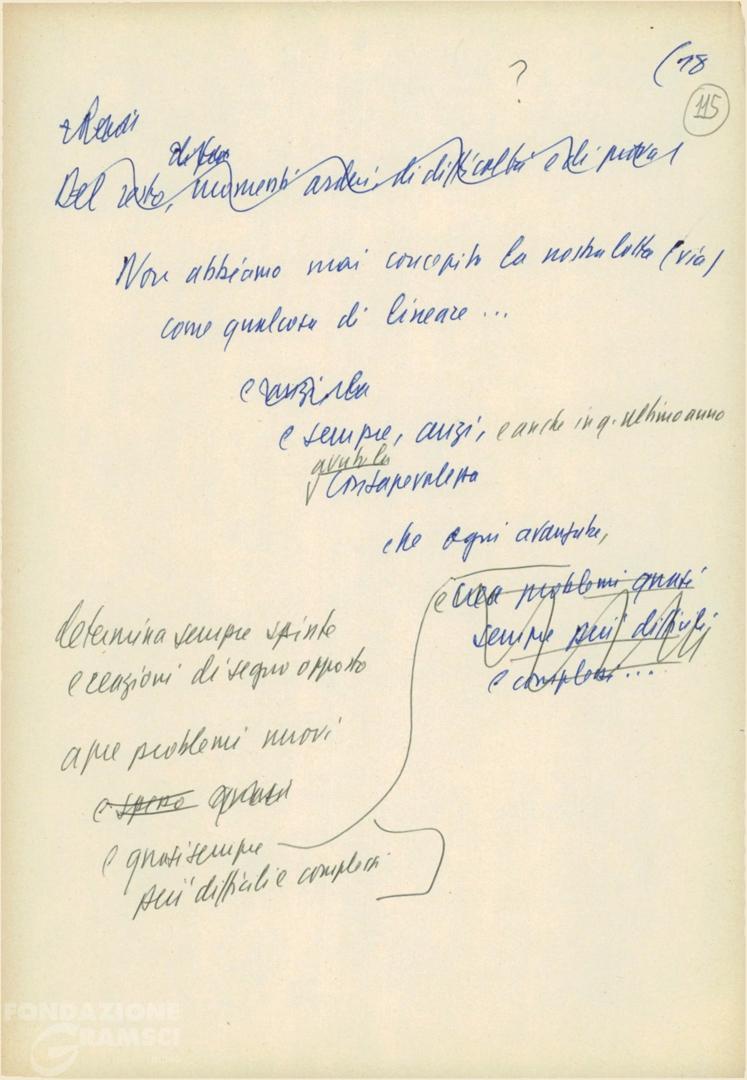 ?
(18
115
Del resto, momenti ardui di difficoltà e di prova
Non abbiamo mai concepito la nostra lotta (via)
come qualcosa di lineare ...
e sempre, anzi, e anche in q. ultimo anno
avuto la
consapevolezza
che ogni avanzata,
e crea problemi quasi
sempre più difficili
e complessi ...
determina sempre spinte
e reazioni di segno opposto
apre problemi nuovi
e spesso quasi
e quasi sempre
più difficili e complessi
FONDAZIONE
GRAMSCI